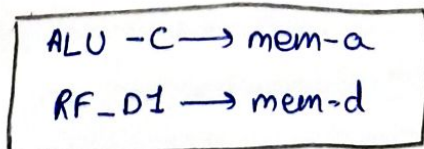 ALU -C → mem-a
RF_D1 → mem-d